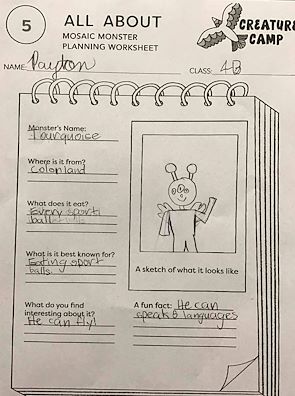 5
ALL ABOUT
MOSAIC MONSTER
PLANNING WORKSHEET
CREATURE
CAMP
NAME: Payton
CLASS: 4B
Monster's Name:
Tourquoise
Where is it from?
Colorland
What does it eat?
Every sport
ball
What is it best known for?
Eating sport
balls.
A sketch of what it looks like
What do you find
interesting about it?
He can fly!
A fun fact: He can
speak 8 languages